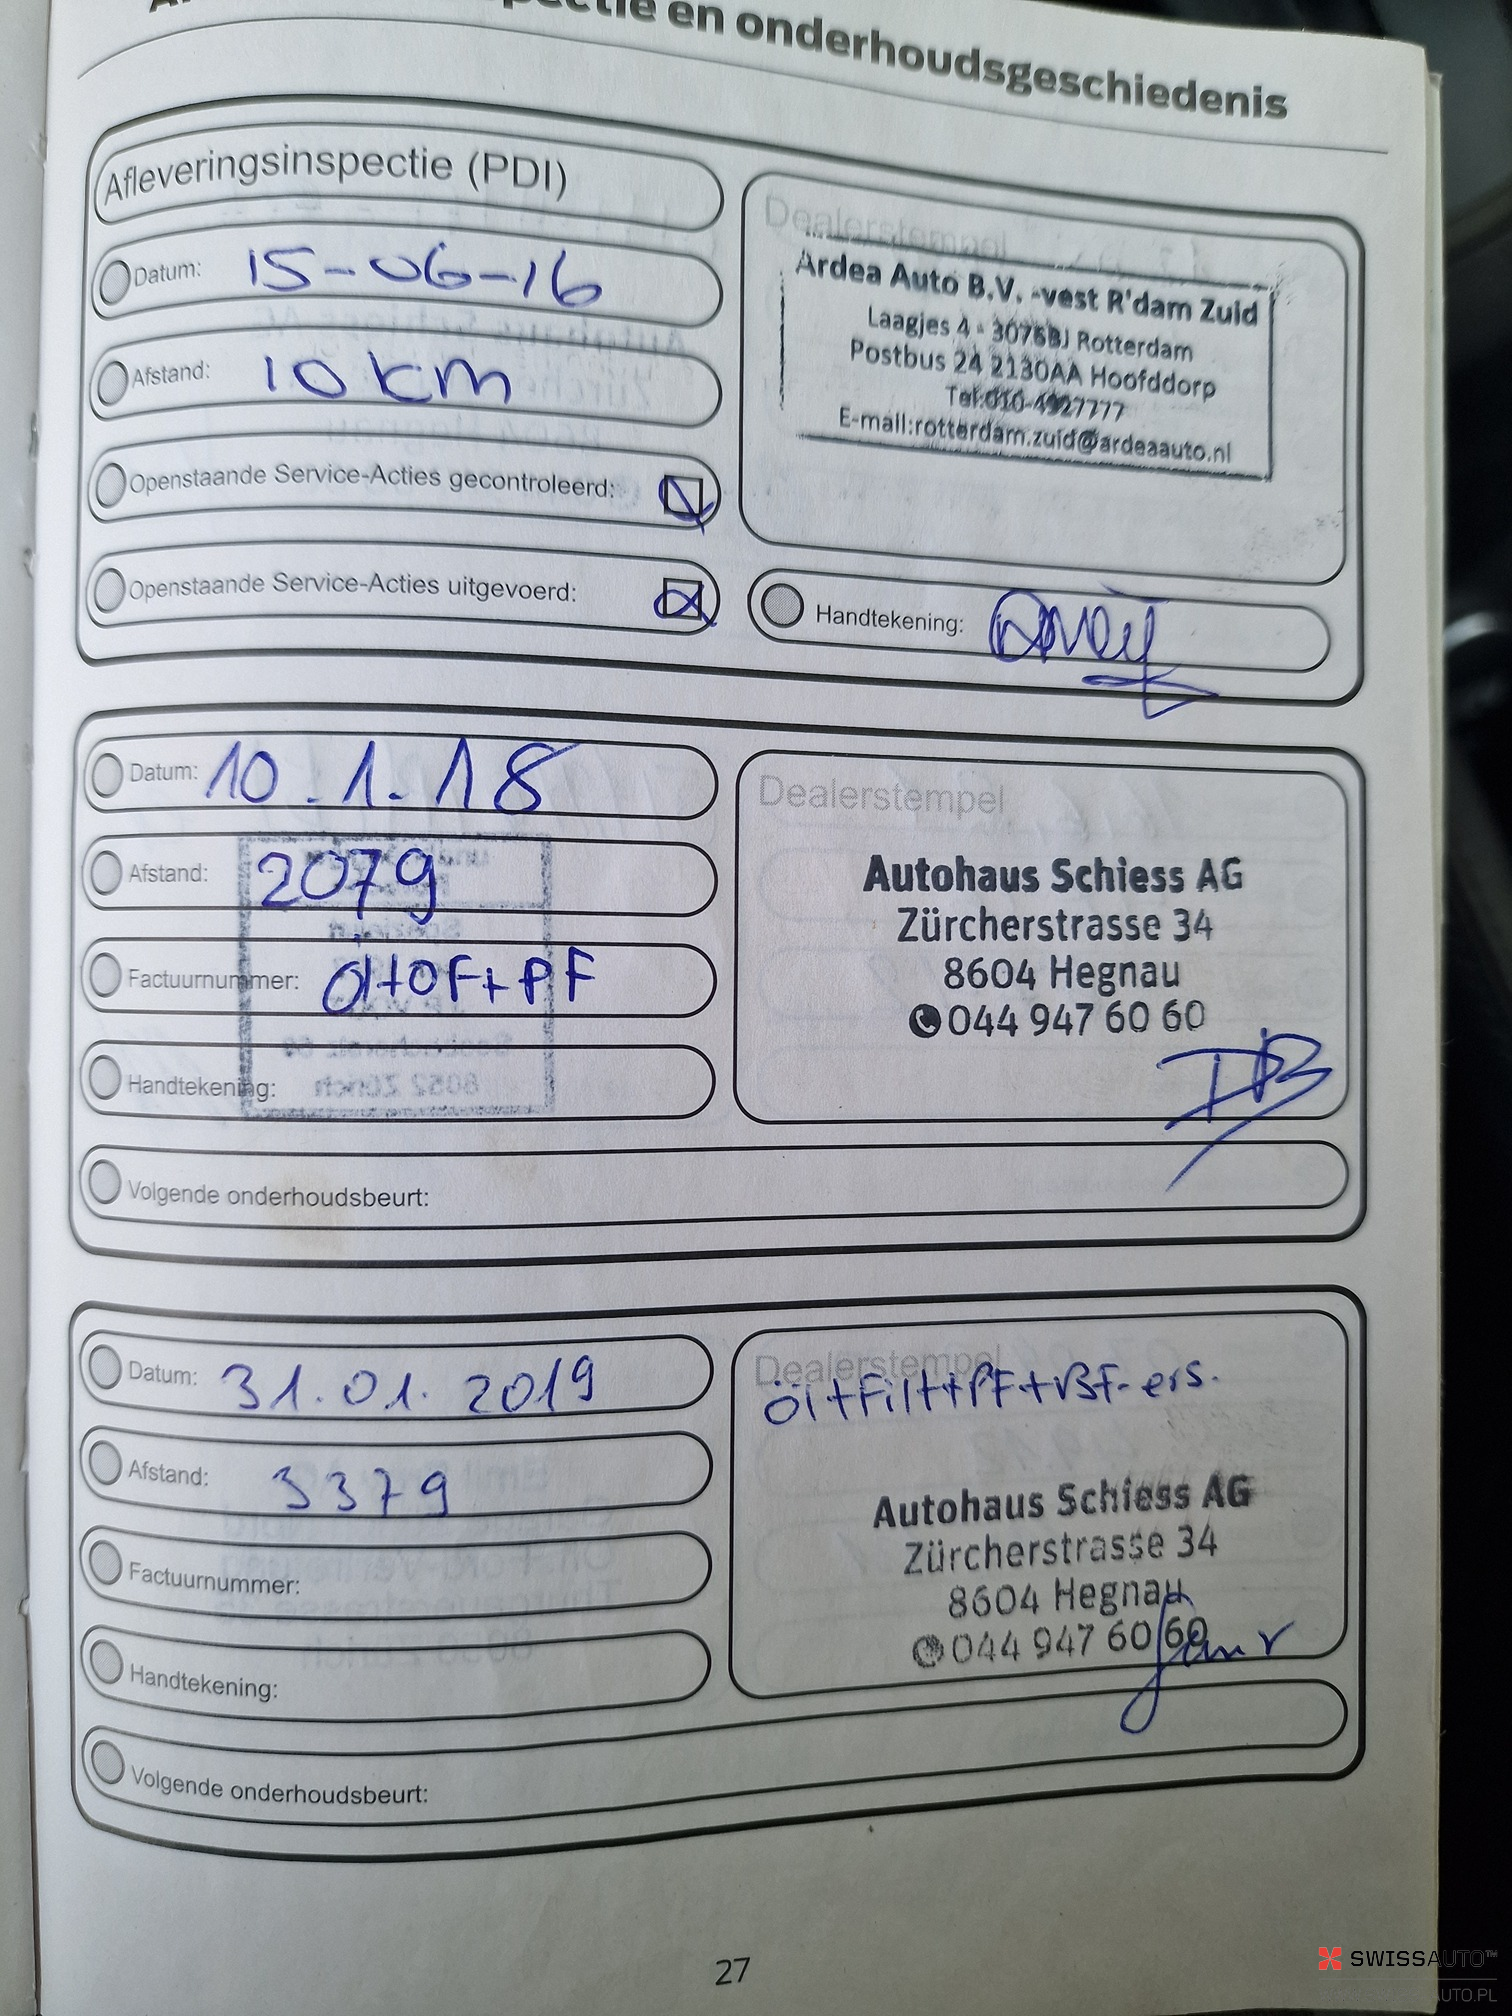 en onderhoudsgeschiedenis
Afleveringsinspectie (PDI)
Datum: 15-06-16
Afstand: 10 km
Openstaande Service-Acties gecontroleerd:
Openstaande Service-Acties uitgevoerd:
Dealerstempel
Ardea Auto B.V. -vest R'dam Zuid
Laagjes 4 - 3076BJ Rotterdam
Postbus 24 2130AA Hoofddorp
Tel:010-4927777
E-mail:rotterdam.zuid@ardeaauto.nl
Handtekening:
Datum: 10.1.18
Afstand: 2079
Factuurnummer: Öl+OF+PF
Handtekening:
Dealerstempel
Autohaus Schiess AG
Zürcherstrasse 34
8604 Hegnau
044 947 60 60
Volgende onderhoudsbeurt:
Datum: 31.01.2019
Afstand: 3379
Factuurnummer:
Handtekening:
Dealerstempel
Öl+Filt+PF+BF-ers.
Autohaus Schiess AG
Zürcherstrasse 34
8604 Hegnau
044 947 60 60
Volgende onderhoudsbeurt:
27
SWISSAUTO™